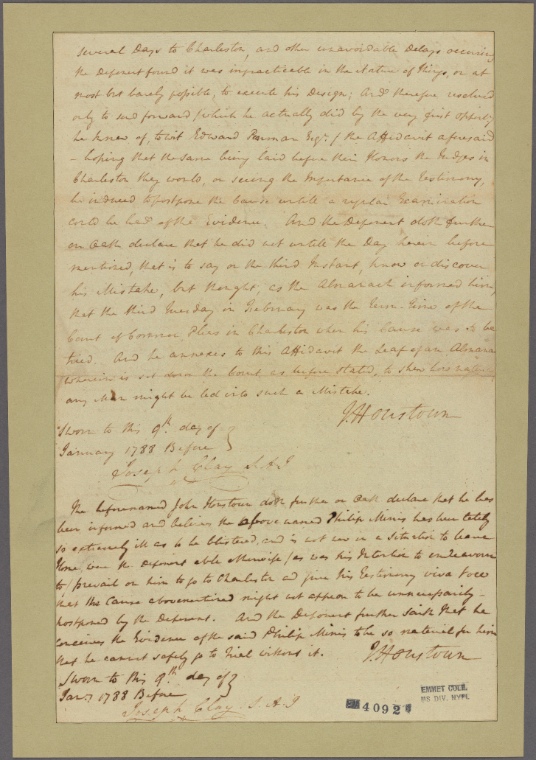 several Days to Charleston, and other unavoidable Delays occuring
the Deponent found it was impracticable in the Nature of Things, or at
most but barely possible, to execute his Design; And therefore resolved
only to send forward (which he actually did by the very first
he knew of, to wit Edward Esqr.) the Affidavit aforesaid
– hoping that the same being laid before their Honors the Judges in
Charleston they would, on seeing the Importance of the Testimony,
be induced to postpone the Cause untill a regular Examination
could be had of the evidence. And the Deponent doth further
on Oath declare that he did not untill the Day herein before
mentioned, that is to say on the third Instant, know or discover
his Mistake, but thought, as the Almanack informed him,
that the third Tuesday in February was the Term-Time of the
Court of Common Pleas in Charleston when his Cause was to be
tried. And he annexes to this Affidavit the Leaf of an Almanack
wherein is set down the Court as before stated, to shew how
any Man might be led into such a Mistake.
J. Houstoun
Sworn to this 9th day of
January 1788 Before
Joseph Clay
The beforenamed John Houstoun doth further on Oath declare that he has
been informed and believes the above named Philip Minis has been lately
so extremely ill as to be blistered, and is not now in a Situation to leave
Home, were the deponent able otherwise (as was his Intention to endeavour
to) prevail on him to go to Charleston and give his Testimony viva voce
that the Cause abovementioned might not appear to be unnecessarily
postponed by the Deponent. And the Deponent further saith that he
conceives the Evidence of the said Philip Minis to be so material for him
that he cannot safely go to Trial without it.
J. Houstoun
Sworn to this 9th day of
Jany 1788 Before
Joseph Clay
EMMET COLL.
MS DIV. NYPL